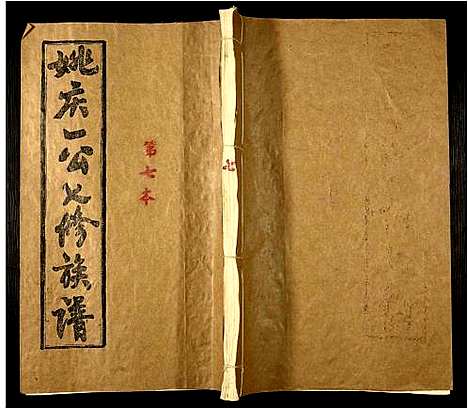 姚庆一公七修族谱
第七本
七